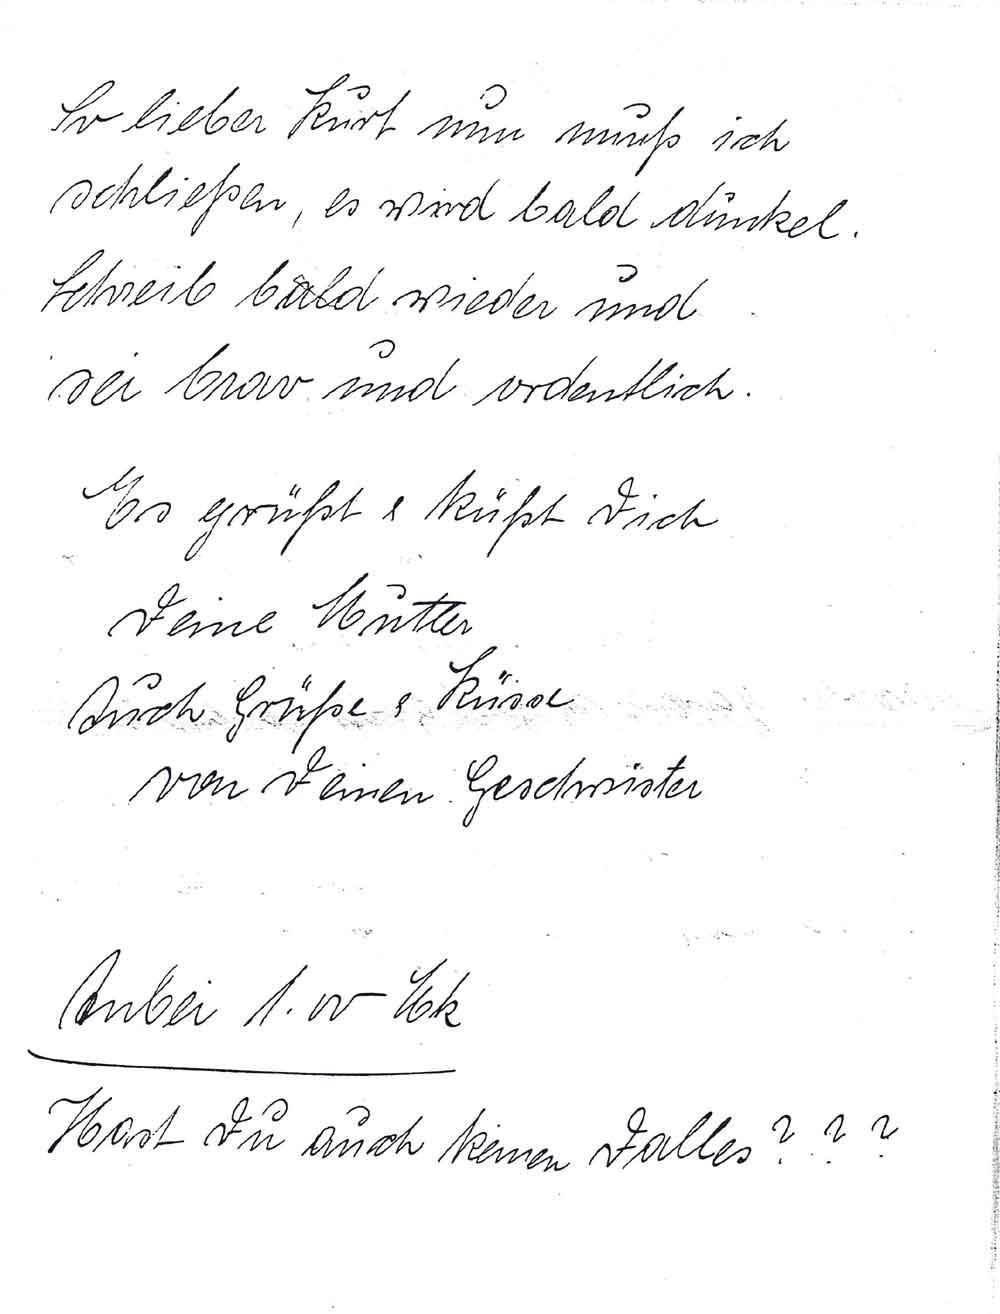 So lieber Kurt nun muß ich
schließen, es wird bald dunkel.
Schreib bald wieder und
sei brav und ordentlich.
Es grüßt & küßt Dich
Deine Mutter
Auch Grüße & Küsse
von Deinen Geschwister
Anbei 1.00 Mk
Hast Du auch keinen Dalles? ? ?